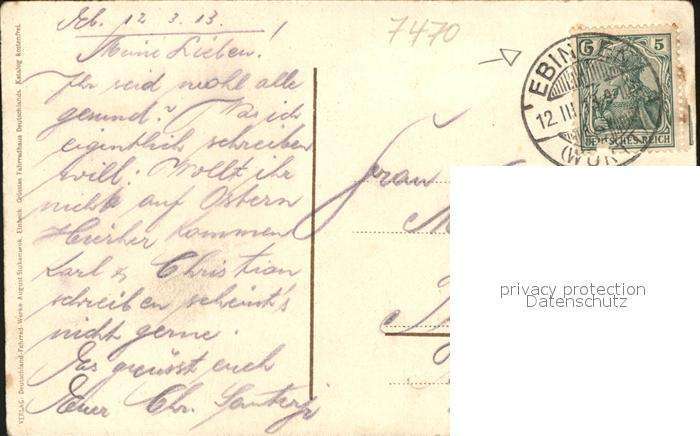 Eb. 12. 3. 13.
Meine Lieben!
Ihr seid wohl alle
gesund? Was ich
eigentlich schreiben
will: Wollt ihr
nicht auf Ostern
hierher kommen
Karl & Christian
schreiben scheint's
nicht gerne.
Es grüsst euch
Euer Chr.
7470
5 5
EBINGEN
12. III
DEUTSCHES REICH
(WÜR
Frau
privacy protection
Datenschutz
VERLAG: Deutschland-Fahrrad-Werke August Stukenbrok, Einbeck. Grösstes Fahrradhaus Deutschlands. Katalog kostenfrei.